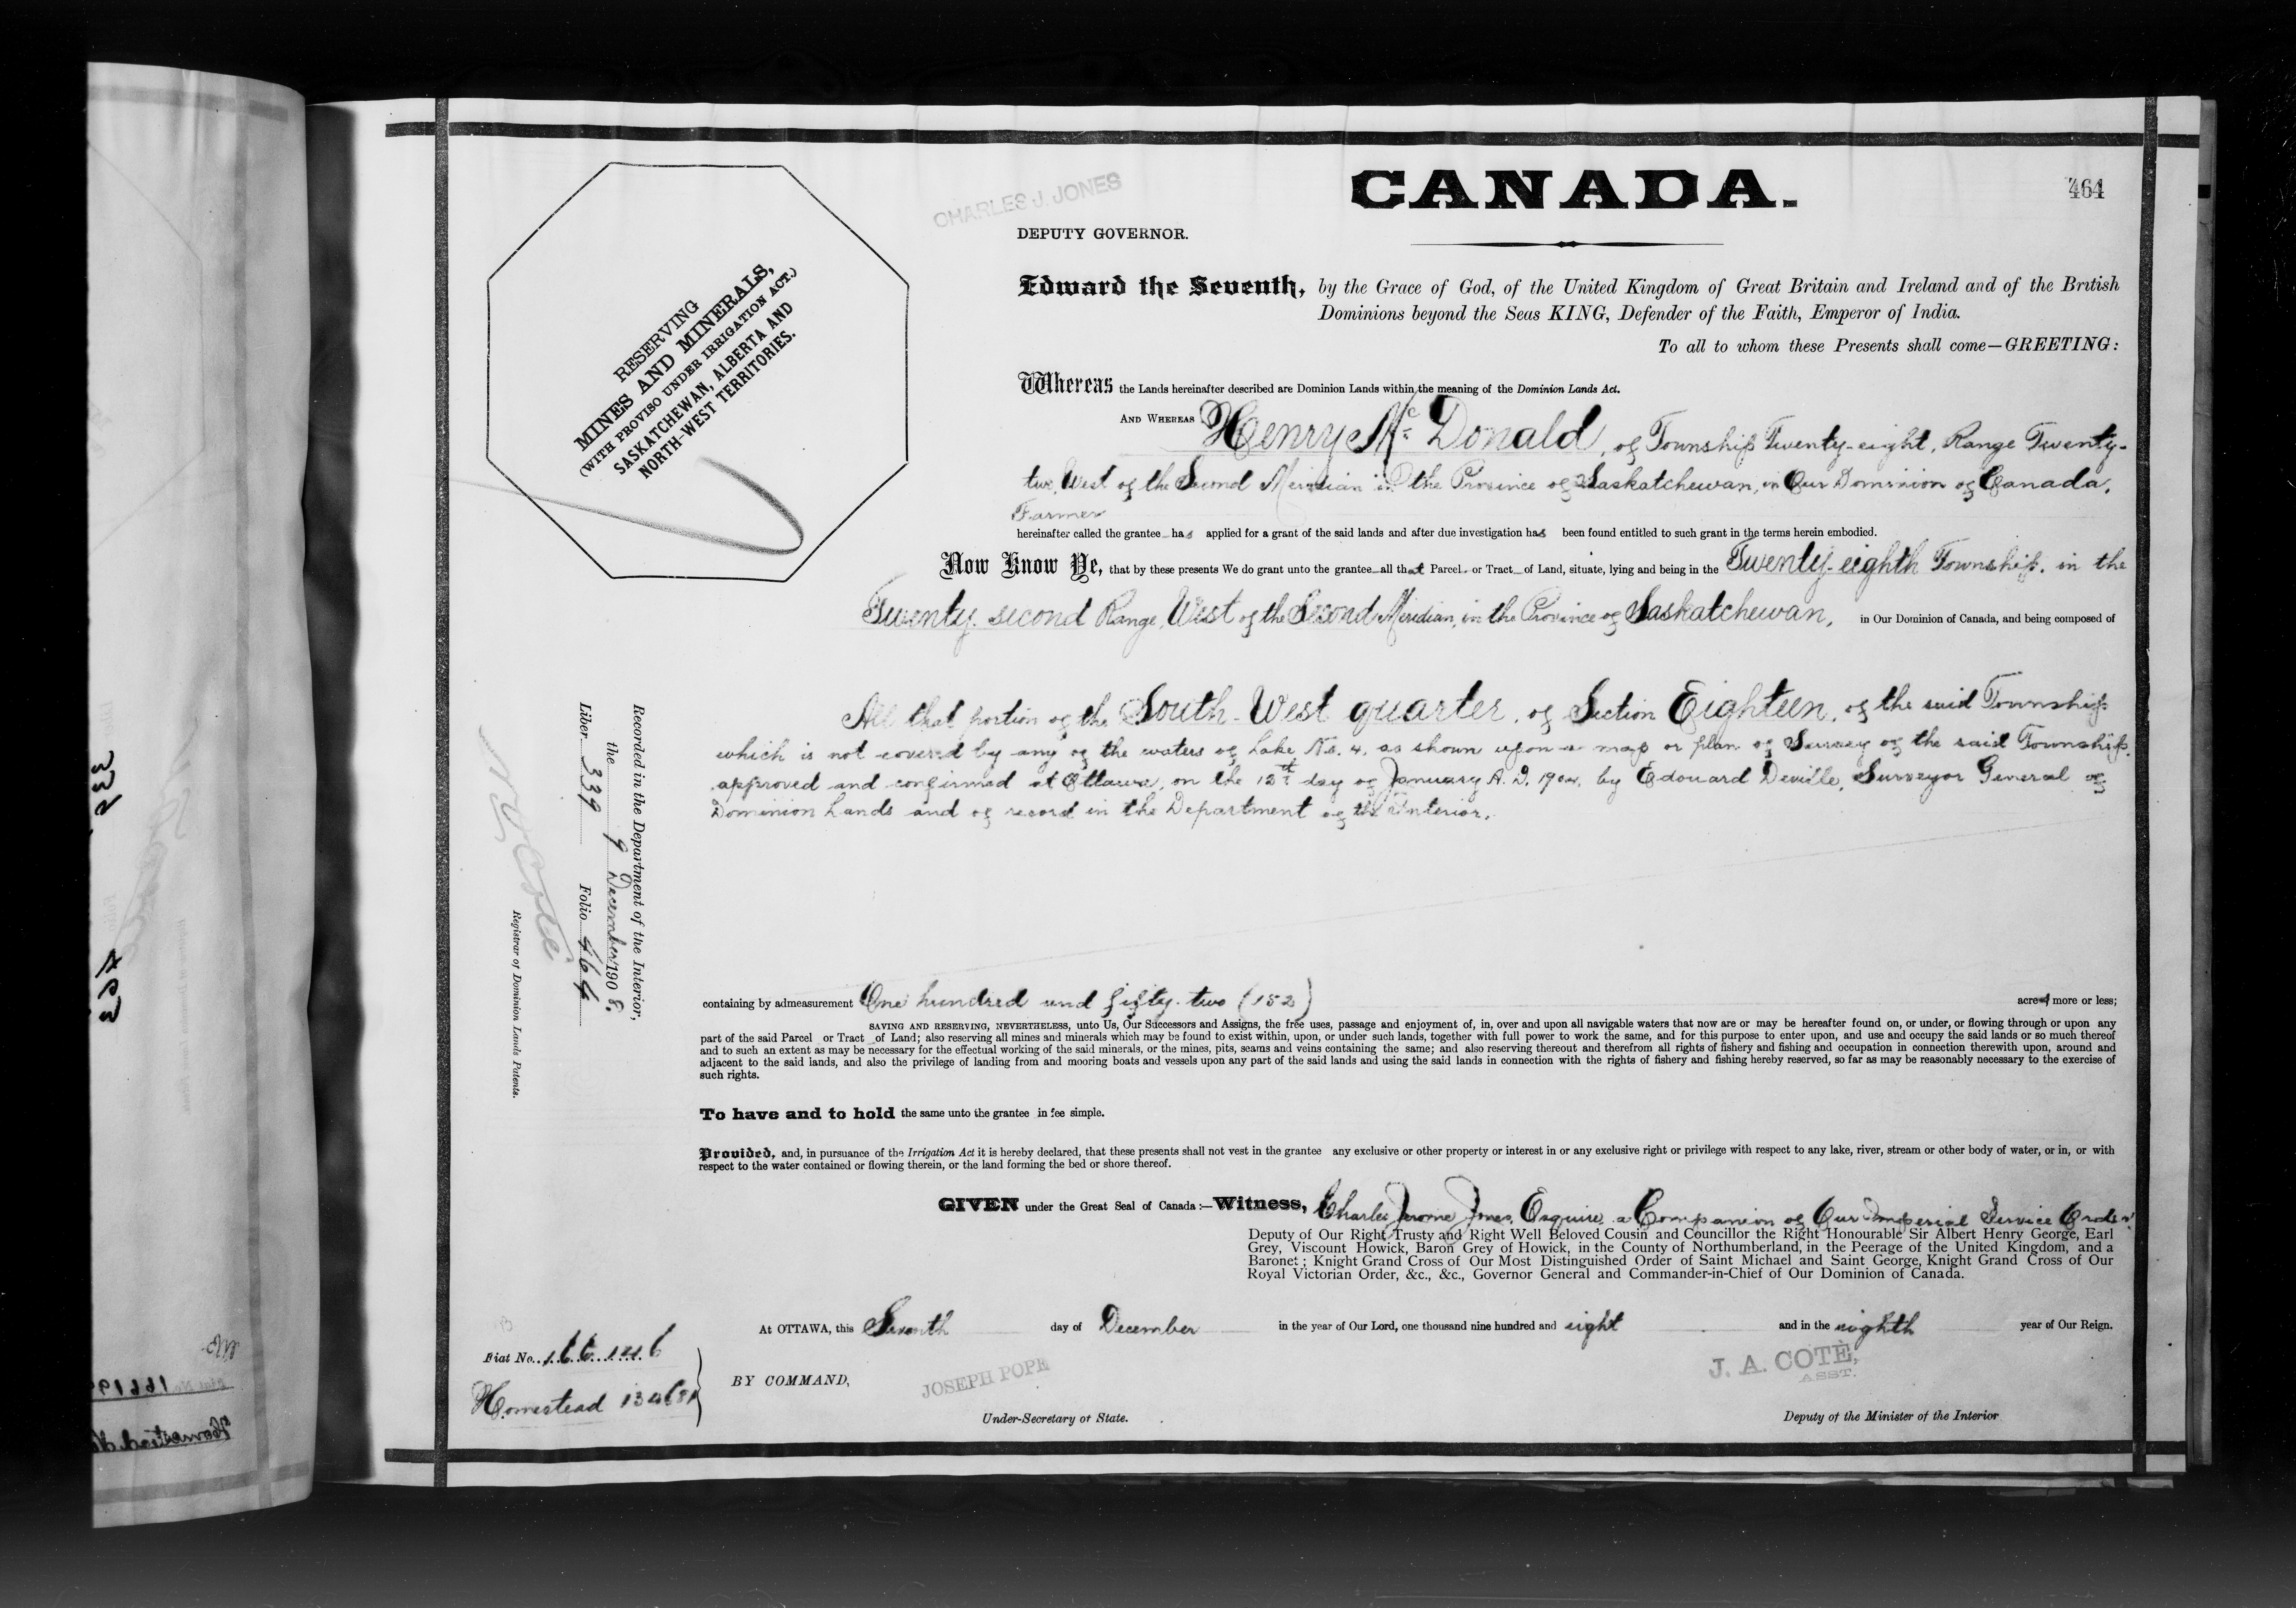 CANADA.
464
CHARLES J. JONES
DEPUTY GOVERNOR.
RESERVING
MINES AND MINERALS,
(WITH PROVISO UNDER IRRIGATION ACT.)
SASKATCHEWAN, ALBERTA AND
NORTH-WEST TERRITORIES.
Edward the Seventh, by the Grace of God, of the United Kingdom of Great Britain and Ireland and of the British
Dominions beyond the Seas KING, Defender of the Faith, Emperor of India.
To all to whom these Presents shall come—GREETING:
Whereas the Lands hereinafter described are Dominion Lands within the meaning of the Dominion Lands Act.
AND WHEREAS Henry McDonald, of Township Twenty-eight, Range Twenty-
two, West of the Second Meridian in the Province of Saskatchewan, in Our Dominion of Canada,
Farmer
hereinafter called the grantee has applied for a grant of the said lands and after due investigation has been found entitled to such grant in the terms herein embodied.
Now Know Ye, that by these presents We do grant unto the grantee all that Parcel or Tract of Land, situate, lying and being in the Twenty-eighth Township, in the
Twenty-second Range, West of the Second Meridian, in the Province of Saskatchewan, in Our Dominion of Canada, and being composed of
All that portion of the South-West quarter, of Section Eighteen, of the said Township
which is not covered by any of the waters of Lake No. 4, as shown upon a map or plan of Survey of the said Township,
approved and confirmed at Ottawa, on the day of January A.D. by Edouard Deville, Surveyor General of
Dominion Lands and of record in the Department of the Interior.
containing by admeasurement One hundred and fifty-two (152) acres more or less;
SAVING AND RESERVING, NEVERTHELESS, unto Us, Our Successors and Assigns, the free uses, passage and enjoyment of, in, over and upon all navigable waters that now are or may be hereafter found on, or under, or flowing through or upon any
part of the said Parcel or Tract of Land; also reserving all mines and minerals which may be found to exist within, upon, or under such lands, together with full power to work the same, and for this purpose to enter upon, and use and occupy the said lands or so much thereof
and to such an extent as may be necessary for the effectual working of the said minerals, or the mines, pits, seams and veins containing the same; and also reserving thereout and therefrom all rights of fishery and fishing and occupation in connection therewith upon, around and
adjacent to the said lands, and also the privilege of landing from and mooring boats and vessels upon any part of the said lands and using the said lands in connection with the rights of fishery and fishing hereby reserved, so far as may be reasonably necessary to the exercise of
such rights.
To have and to hold the same unto the grantee in fee simple.
Provided, and, in pursuance of the Irrigation Act it is hereby declared, that these presents shall not vest in the grantee any exclusive or other property or interest in or any exclusive right or privilege with respect to any lake, river, stream or other body of water, or in, or with
respect to the water contained or flowing therein, or the land forming the bed or shore thereof.
GIVEN under the Great Seal of Canada:—Witness, Charles Jerome Jones, Esquire, a Companion of Our Imperial Service Order,
Deputy of Our Right Trusty and Right Well Beloved Cousin and Councillor the Right Honourable Sir Albert Henry George, Earl
Grey, Viscount Howick, Baron Grey of Howick, in the County of Northumberland, in the Peerage of the United Kingdom, and a
Baronet; Knight Grand Cross of Our Most Distinguished Order of Saint Michael and Saint George, Knight Grand Cross of Our
Royal Victorian Order, &c., &c., Governor General and Commander-in-Chief of Our Dominion of Canada.
At OTTAWA, this Seventh day of December in the year of Our Lord, one thousand nine hundred and eight and in the eighth year of Our Reign.
BY COMMAND,
JOSEPH POPE
Under-Secretary of State.
J. A. COTÉ,
ASST.
Deputy of the Minister of the Interior
Recorded in the Department of the Interior,
the 9 December 1908.
Liber 339 Folio 464
N O Coté
Registrar of Dominion Lands Patents.
Fiat No. 166146
Homestead